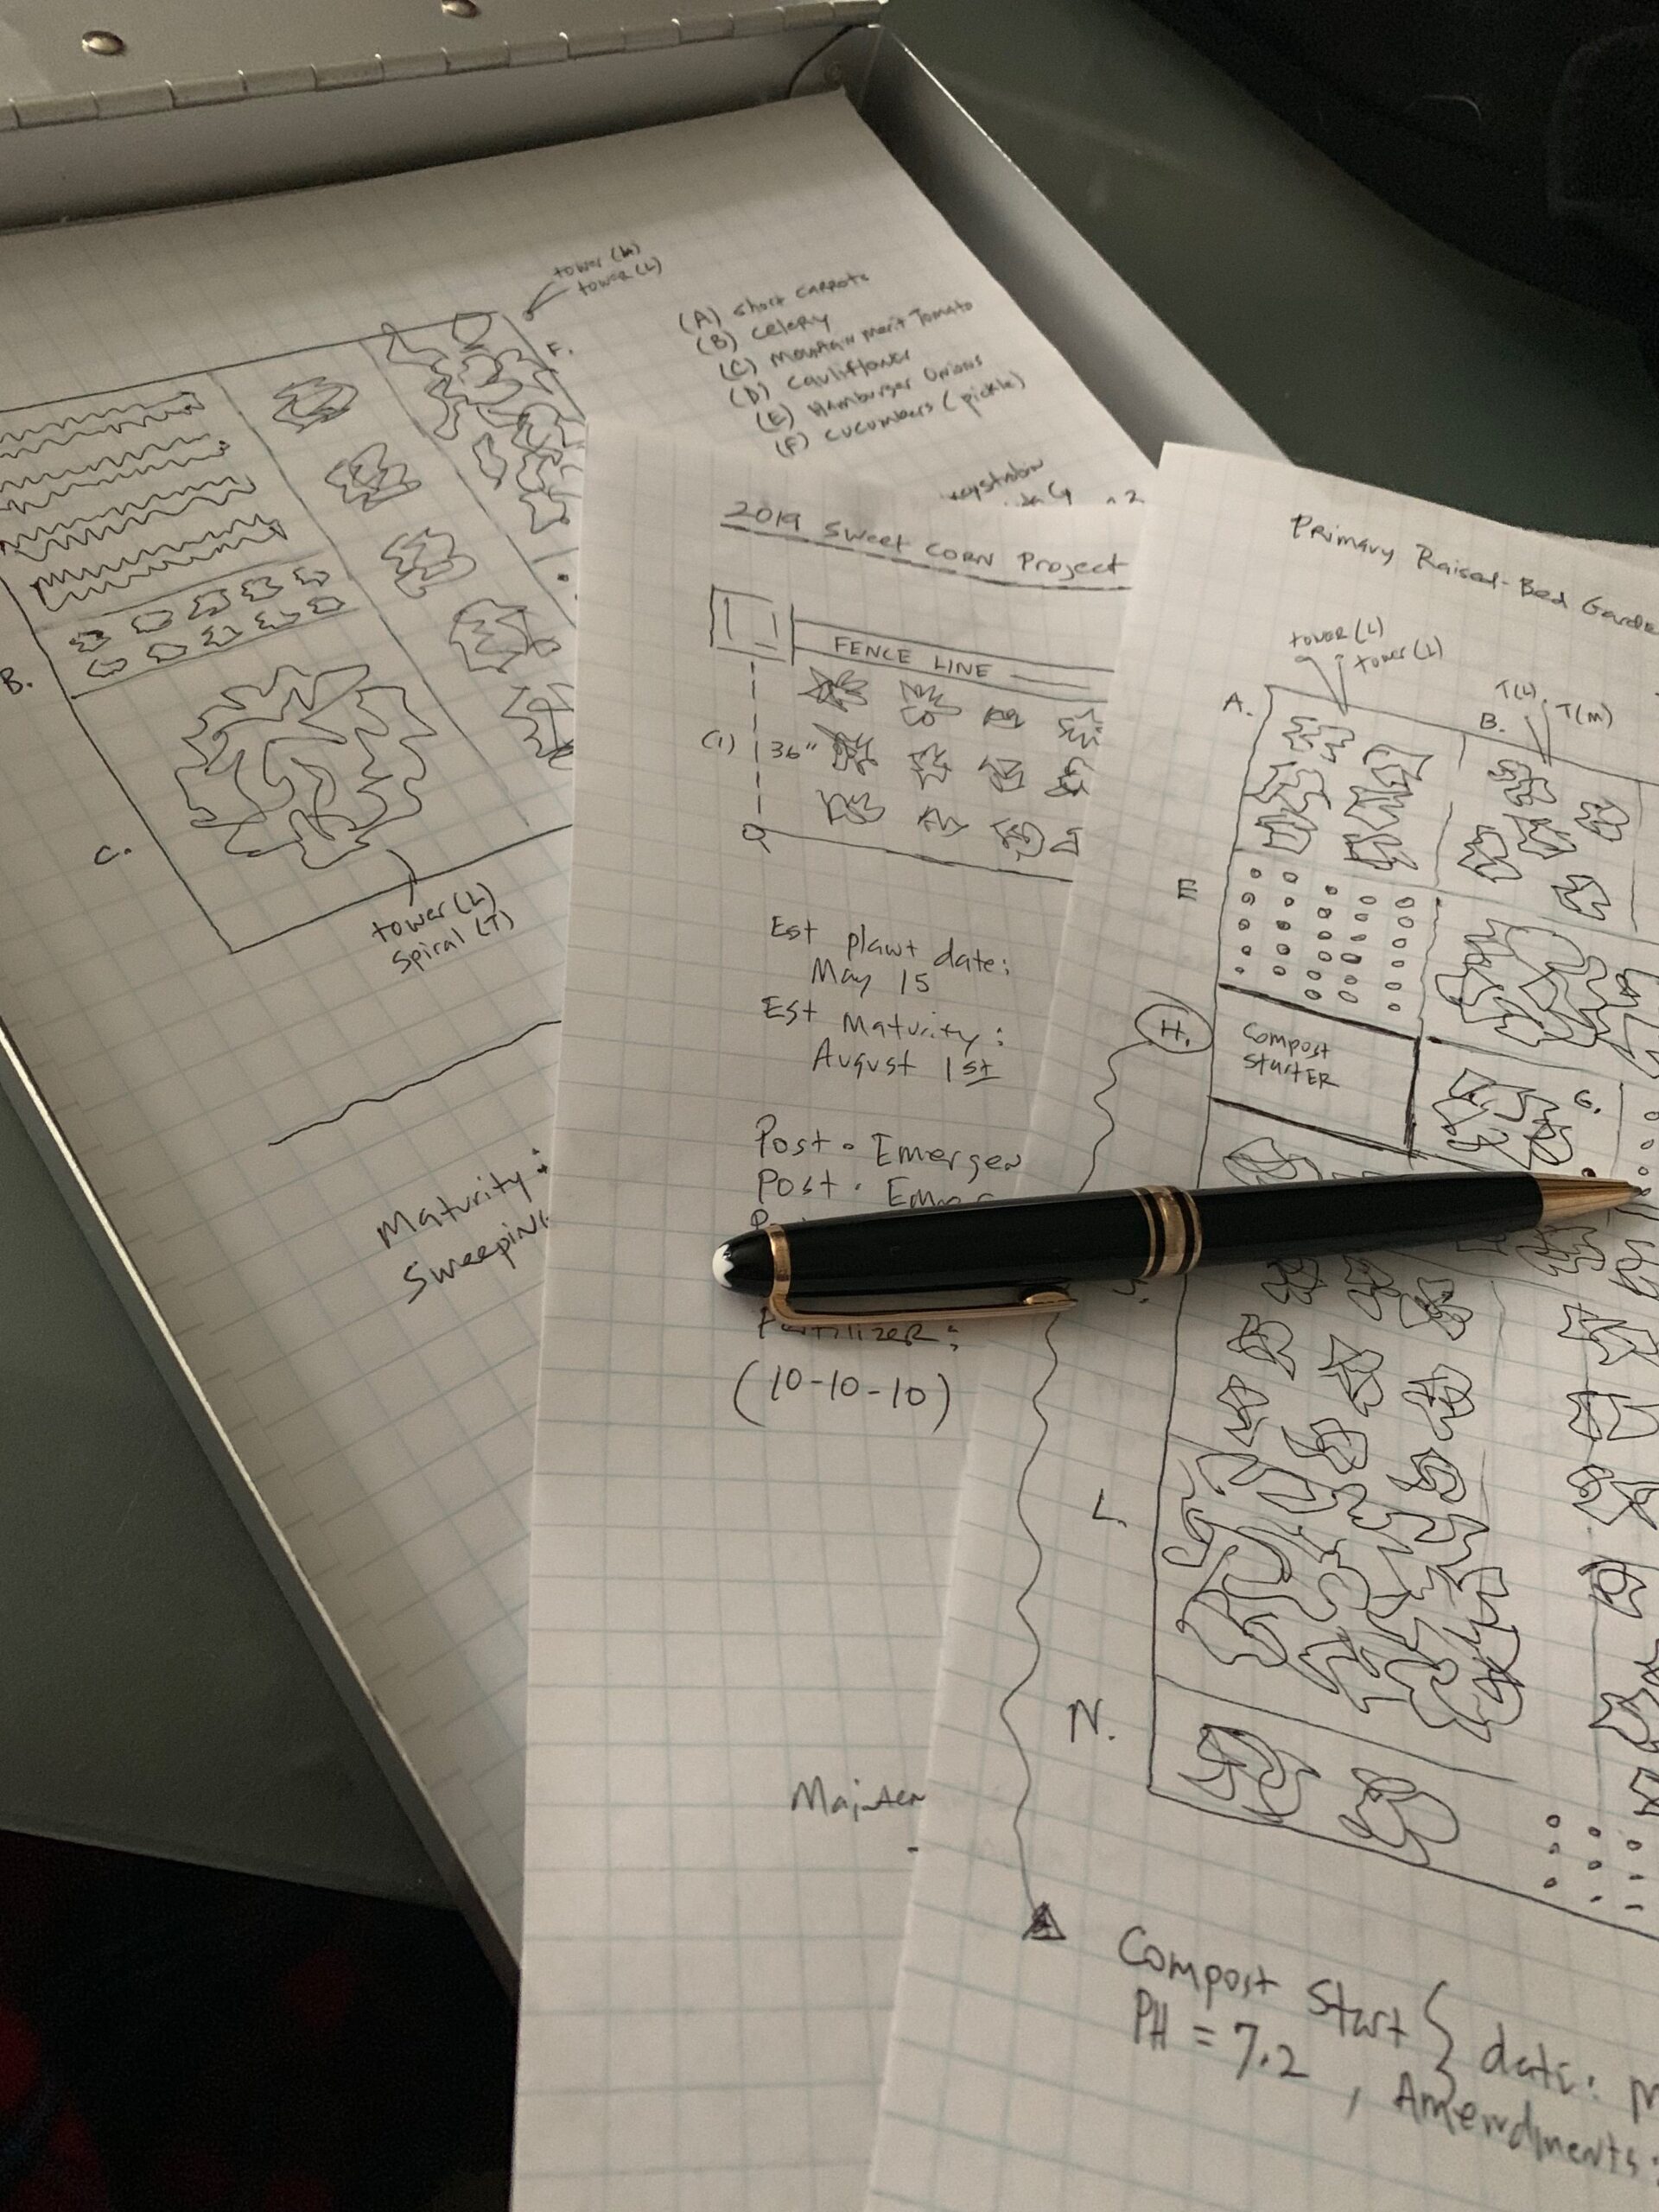 tower (M)
tower (L)
F.
(A) short carrots
(B) celery
(C) Mountain merit Tomato
(D) cauliflower
(E) Hamburger Onions
(F) cucumbers (pickle)
B.
C.
tower (L)
Spiral (T)
Maturity:
Sweeping
2019 Sweet CORN Project
FENCE LINE
(1) 36"
Est plant date:
May 15
Est Maturity:
August 1st
Post-Emergen
Post-Emer
Fertilizer:
(10-10-10)
Mainten
Primary Raised-Bed Garde
tower (L)
tower (L)
T(L)
T(M)
A.
B.
E
H.
Compost
StartER
G.
L.
N.
Compost Start } date: M
PH = 7.2, Amendments: